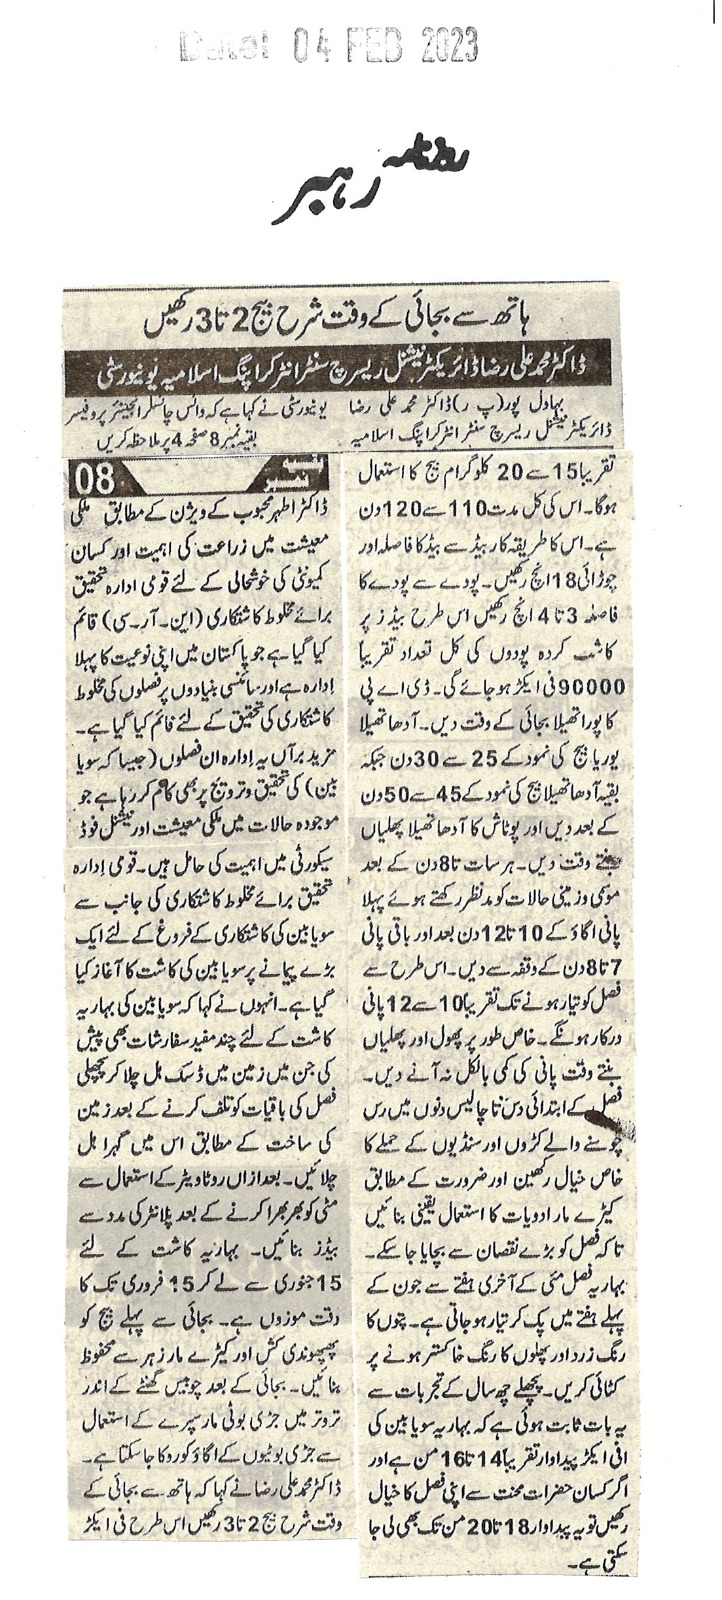 Date: 04 FEB 2023
روزنامہ رہبر
ہاتھ سے بجائی کے وقت شرح بیج 2 تا 3 رکھیں
ڈاکٹر محمد علی رضا ڈائریکٹر نیشنل ریسرچ سنٹر انٹر کراپنگ اسلامیہ یونیورسٹی
بہاول پور (پ ر) ڈاکٹر محمد علی رضا
ڈائریکٹر نیشنل ریسرچ سنٹر انٹر کراپنگ اسلامیہ
یونیورسٹی نے کہا ہے کہ وائس چانسلر انجینئر پروفیسر
بقیہ نمبر 8 صفحہ 4 پر ملاحظہ کریں
بقیہ نمبر 08
ڈاکٹر اطہر محبوب کے ویژن کے مطابق ملکی
معیشت میں زراعت کی اہمیت اور کسان
کمیونٹی کی خوشحالی کے لئے قومی ادارہ تحقیق
برائے مخلوط کاشتکاری (این۔آر۔سی) قائم
کیا گیا ہے جو پاکستان میں اپنی نوعیت کا پہلا
ادارہ ہے اور سائنسی بنیادوں پر فصلوں کی مخلوط
کاشتکاری کی تحقیق کے لئے قائم کیا گیا ہے۔
مزید برآں یہ ادارہ ان فصلوں (جیسا کہ سویا
بین) کی تحقیق و ترویج پر بھی کام کر رہا ہے جو
موجودہ حالات میں ملکی معیشت اور نیشنل فوڈ
سیکورٹی میں اہمیت کی حامل ہیں۔ قومی ادارہ
تحقیق برائے مخلوط کاشتکاری کی جانب سے
سویا بین کی کاشتکاری کے فروغ کے لئے ایک
بڑے پیمانے پر سویا بین کی کاشت کا آغاز کیا
گیا ہے۔ انہوں نے کہا کہ سویا بین کی بہاریہ
کاشت کے لئے چند مفید سفارشات بھی پیش
کی جن میں زمین میں ڈسک ہل چلا کر پچھلی
فصل کی باقیات کو تلف کرنے کے بعد زمین
کی ساخت کے مطابق اس میں گہرا ہل
چلائیں۔ بعد ازاں روٹاویٹر کے استعمال سے
مٹی کو بھر بھرا کرنے کے بعد پلانٹر کی مدد سے
بیڈز بنائیں۔ بہاریہ کاشت کے لئے
15 جنوری سے لے کر 15 فروری تک کا
وقت موزوں ہے۔ بجائی سے پہلے بیج کو
پھپھوندی کش اور کیڑے مار زہر سے محفوظ
بنائیں۔ بجائی کے بعد چوبیس گھنٹے کے اندر
تروتر میں جڑی بوٹی مار سپرے کے استعمال
سے جڑی بوٹیوں کے اگاؤ کو روکا جا سکتا ہے۔
ڈاکٹر محمد علی رضا نے کہا کہ ہاتھ سے بجائی کے
وقت شرح بیج 2 تا 3 رکھیں اس طرح فی ایکڑ
تقریبا 15 سے 20 کلوگرام بیج کا استعمال
ہوگا۔ اس کی کل مدت 110 سے 120 دن
ہے۔ اس کا طریقہ کار بیڈ سے بیڈ کا فاصلہ اور
چوڑائی 18 انچ رکھیں۔ پودے سے پودے کا
فاصلہ 3 تا 4 انچ رکھیں اس طرح بیڈز پر
کاشت کردہ پودوں کی کل تعداد تقریباً
90000 فی ایکڑ ہو جائے گی۔ ڈی اے پی
کا پورا تھیلا بجائی کے وقت دیں۔ آدھا تھیلا
یوریا بیج کی نمود کے 25 سے 30 دن جبکہ
بقیہ آدھا تھیلا بیج کی نمود کے 45 سے 50 دن
کے بعد دیں اور پوٹاش کا آدھا تھیلا پھلیاں
بنتے وقت دیں۔ ہر سات تا 8 دن کے بعد
موسمی و زمینی حالات کو مدنظر رکھتے ہوئے پہلا
پانی اگاؤ کے 10 تا 12 دن بعد اور باقی پانی
7 تا 8 دن کے وقفہ سے دیں۔ اس طرح سے
فصل کو تیار ہونے تک تقریبا 10 سے 12 پانی
درکار ہونگے۔ خاص طور پر پھول اور پھلیاں
بنتے وقت پانی کی کمی بالکل نہ آنے دیں۔
فصل کے ابتدائی دس تا چالیس دنوں میں رس
چوسنے والے کڑوں اور سنڈیوں کے حملے کا
خاص خیال رکھیں اور ضرورت کے مطابق
کیڑے مار ادویات کا استعمال یقینی بنائیں
تاکہ فصل کو بڑے نقصان سے بچایا جا سکے۔
بہاریہ فصل مئی کے آخری ہفتے سے جون کے
پہلے ہفتے میں پک کر تیار ہو جاتی ہے۔ پتوں کا
رنگ زرد اور پھلوں کا رنگ خاکستر ہونے پر
کٹائی کریں۔ پچھلے چھ سال کے تجربات سے
یہ بات ثابت ہوئی ہے کہ بہاریہ سویا بین کی
فی ایکڑ پیداوار تقریباً 14 تا 16 من ہے اور
اگر کسان حضرات محنت سے اپنی فصل کا خیال
رکھیں تو یہ پیداوار 18 تا 20 من تک بھی لی جا
سکتی ہے۔